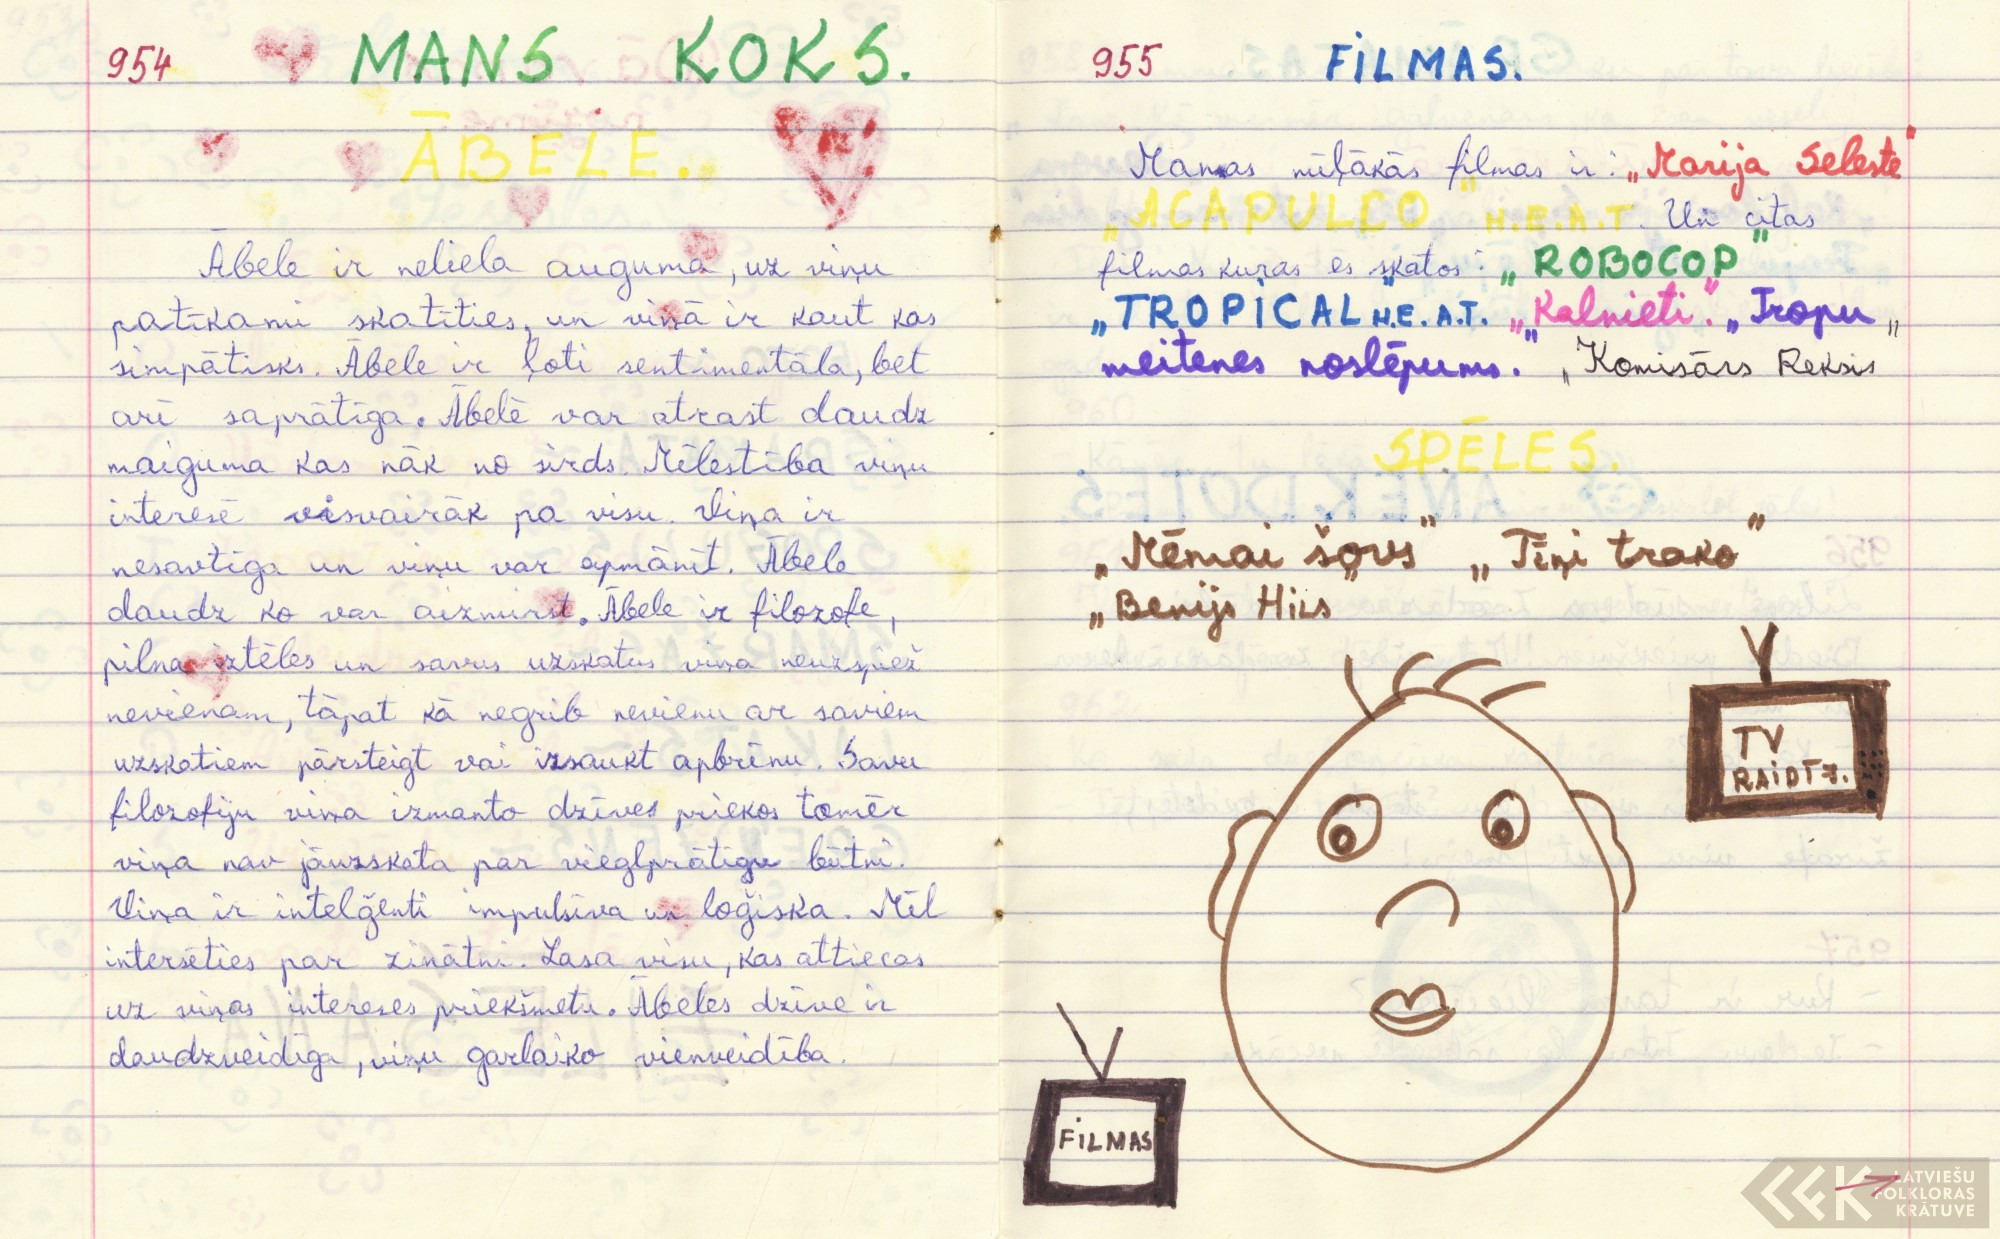 954
MANS KOKS.
ĀBELE.
Ābele ir neliela auguma, uz viņu
patīkami skatīties, un viņā ir kaut kas
simpātisks. Ābele ir ļoti sentimentāla, bet
arī saprātīga. Ābelē var atrast daudz
maiguma kas nāk no sirds. Mīlestība viņu
interesē visvairāk pa visu. Viņa ir
nesavtīga un viņu var apmānīt. Ābele
daudz ko var aizmirst. Ābele ir filozofe,
pilna iztēles un savus uzskatus viņa neuzspiež
nevienam, tāpat kā negrib nevienu ar saviem
uzskatiem pārsteigt vai izsaukt apbrīnu. Savu
filozofiju viņa izmanto dzīves priekos tomēr
viņa nav jāuzskata par vieglprātīgu būtni.
Viņa ir intelģenti impulsīva un loģiska. Mīl
intersēties par zinātni. Lasa visu, kas attiecas
uz viņas intereses priekšmetu. Ābeles dzīve ir
daudzveidīga, viņu garlaiko vienveidība.
955
FILMAS.
Manas mīļākās filmas ir: „Marija Seleste"
„ACAPULCO" H.E.A.T. Un citas
filmas kuras es skatos: „ROBOCOP"
„TROPICAL" H.E.A.T. „Kalnieti". „Tropu
meitenes noslēpums." „Komisārs Reksis"
SPĒLES.
„Mēmai šovs" „Tīņi trako"
„Benijs Hils"
TV
RAIDĪJ.
FILMAS
LATVIEŠU
FOLKLORAS
KRĀTUVE